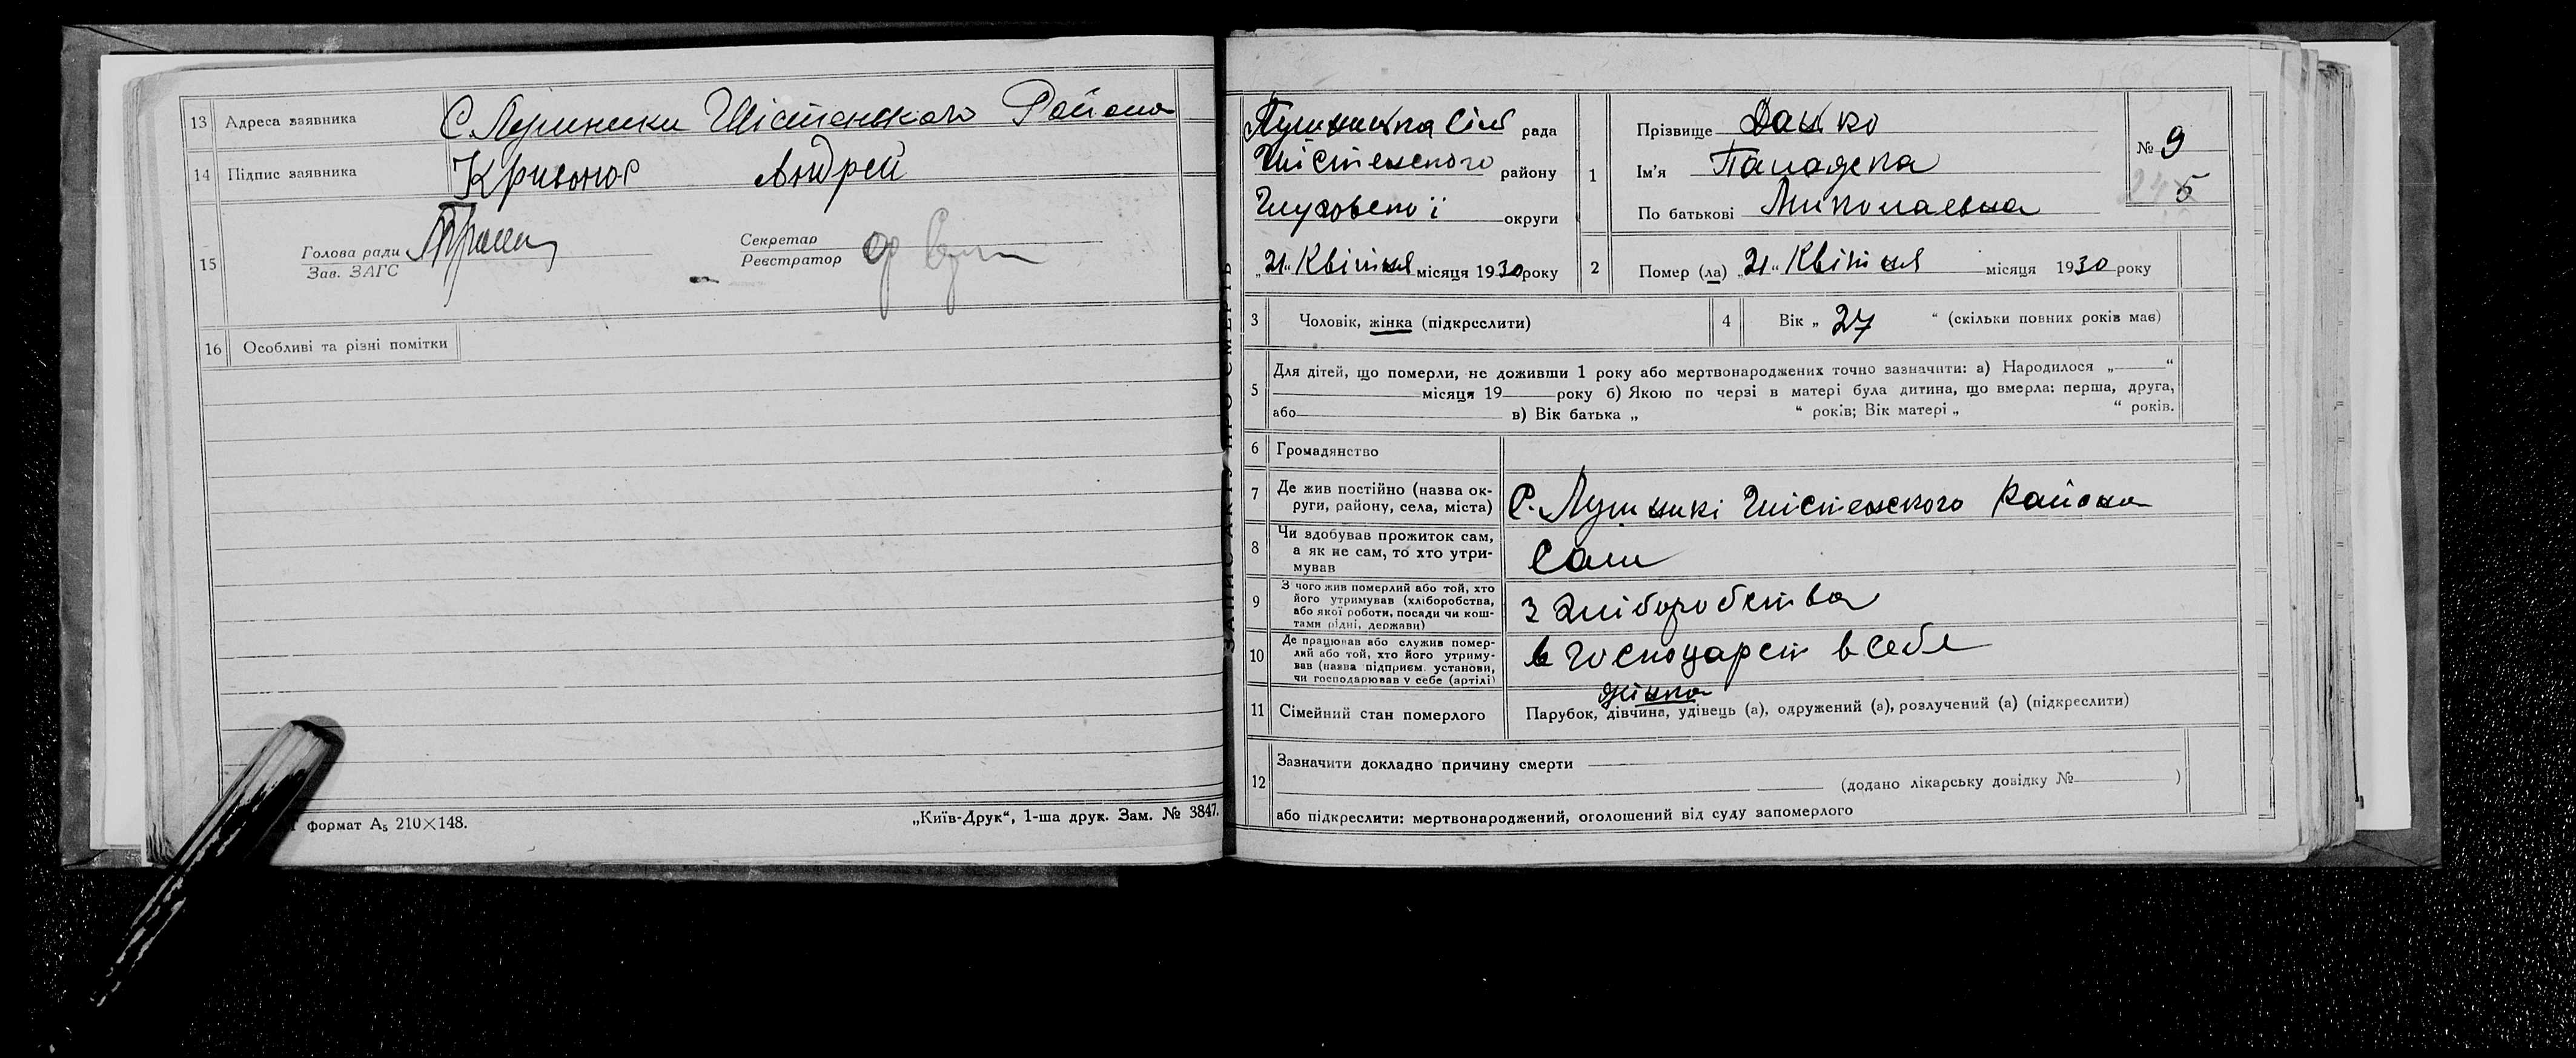 13 Адреса заявника С. Лушники Шістенського Района
14 Підпис заявника Кривонос Андрей
15 Голова ради
Зав. ЗАГС
Секретар
Реєстратор
16 Особливі та різні помітки
формат А₅ 210×148.
„Київ-Друк“, 1-ша друк. Зам. № 3847.
ЗАПИС АКТУ ПРО СМЕРТЬ
Лушникська сіль рада
Шістенского району
Глуховської округи
„21“ Квітня місяця 1930 року
1 Прізвище Дацко
Ім'я
По батькові Миколаевна
№ 9
5
2 Помер (ла) „21“ Квітня місяця 1930 року
3 Чоловік, жінка (підкреслити)
4 Вік „ 27 “ (скільки повних років мав)
5 Для дітей, що померли, не доживши 1 року або мертвонароджених точно зазначити: а) Народилося „ “
місяця 19 року б) Якою по черзі в матері була дитина, що вмерла: перша, друга,
або в) Вік батька „ “ років; Вік матері „ “ років.
6 Громадянство
7 Де жив постійно (назва округи, району, села, міста) С. Лушникі Шістенского Района
8 Чи здобував прожиток сам, а як не сам, то хто утримував Сам
9 З чого жив померлий або той, хто його утримував (хліборобства, або якої роботи, посади чи коштами рідні, держави) З хліборобства
10 Де працював або служив померлий або той, хто його утримував (назва підприєм. установи, чи господарював у себе (артілі) в господарст в себе
жінка
11 Сімейний стан померлого Парубок, дівчина, удівець (а), одружений (а), розлучений (а) (підкреслити)
12 Зазначити докладно причину смерти
(додано лікарську довідку № )
або підкреслити: мертвонароджений, оголошений від суду запомерлого